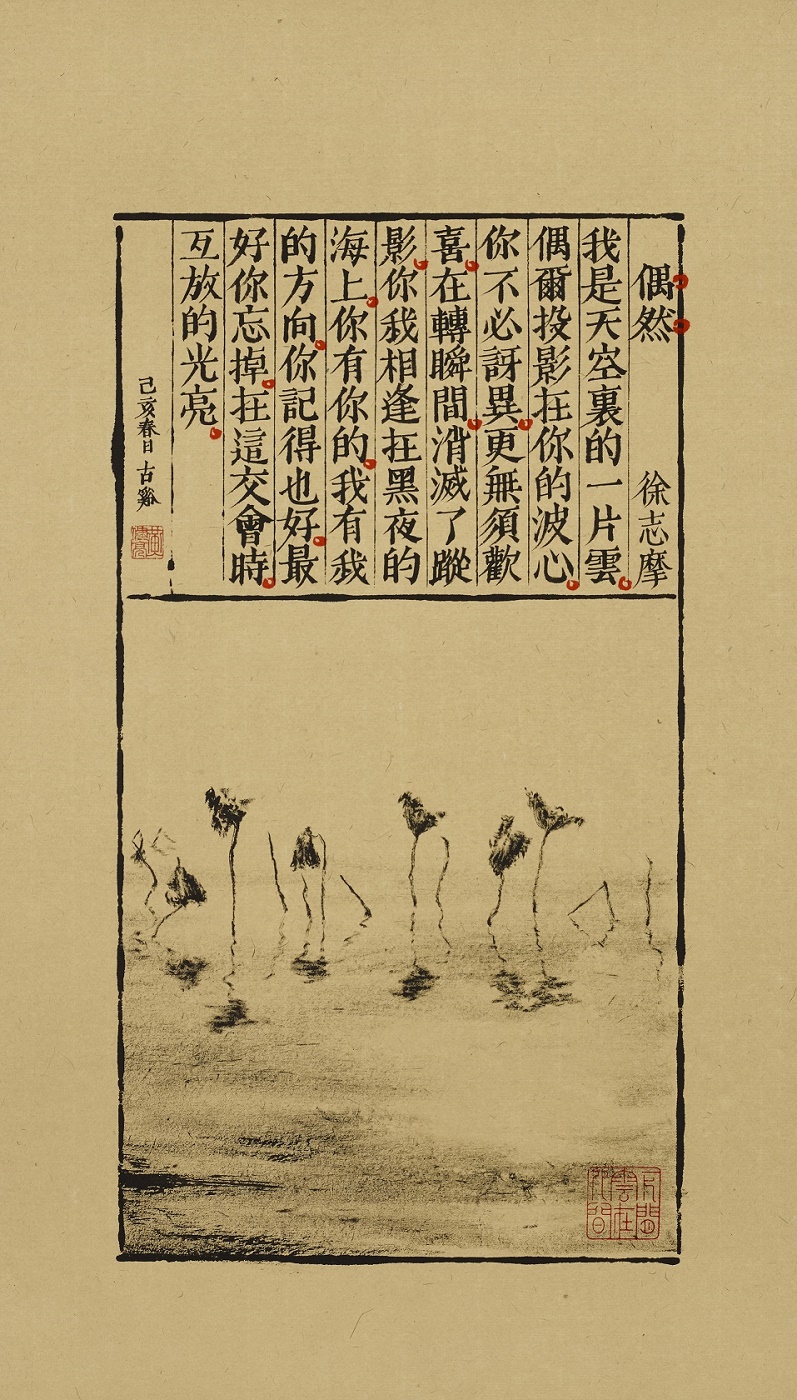 偶然 徐志摩
我是天空裏的一片雲
偶爾投影在你的波心
你不必訝異更無須歡
喜在轉瞬間消滅了蹤
影你我相逢在黑夜的
海上你有你的我有我
的方向你記得也好最
好你忘掉在這交會時
互放的光亮
己亥春日 古谿